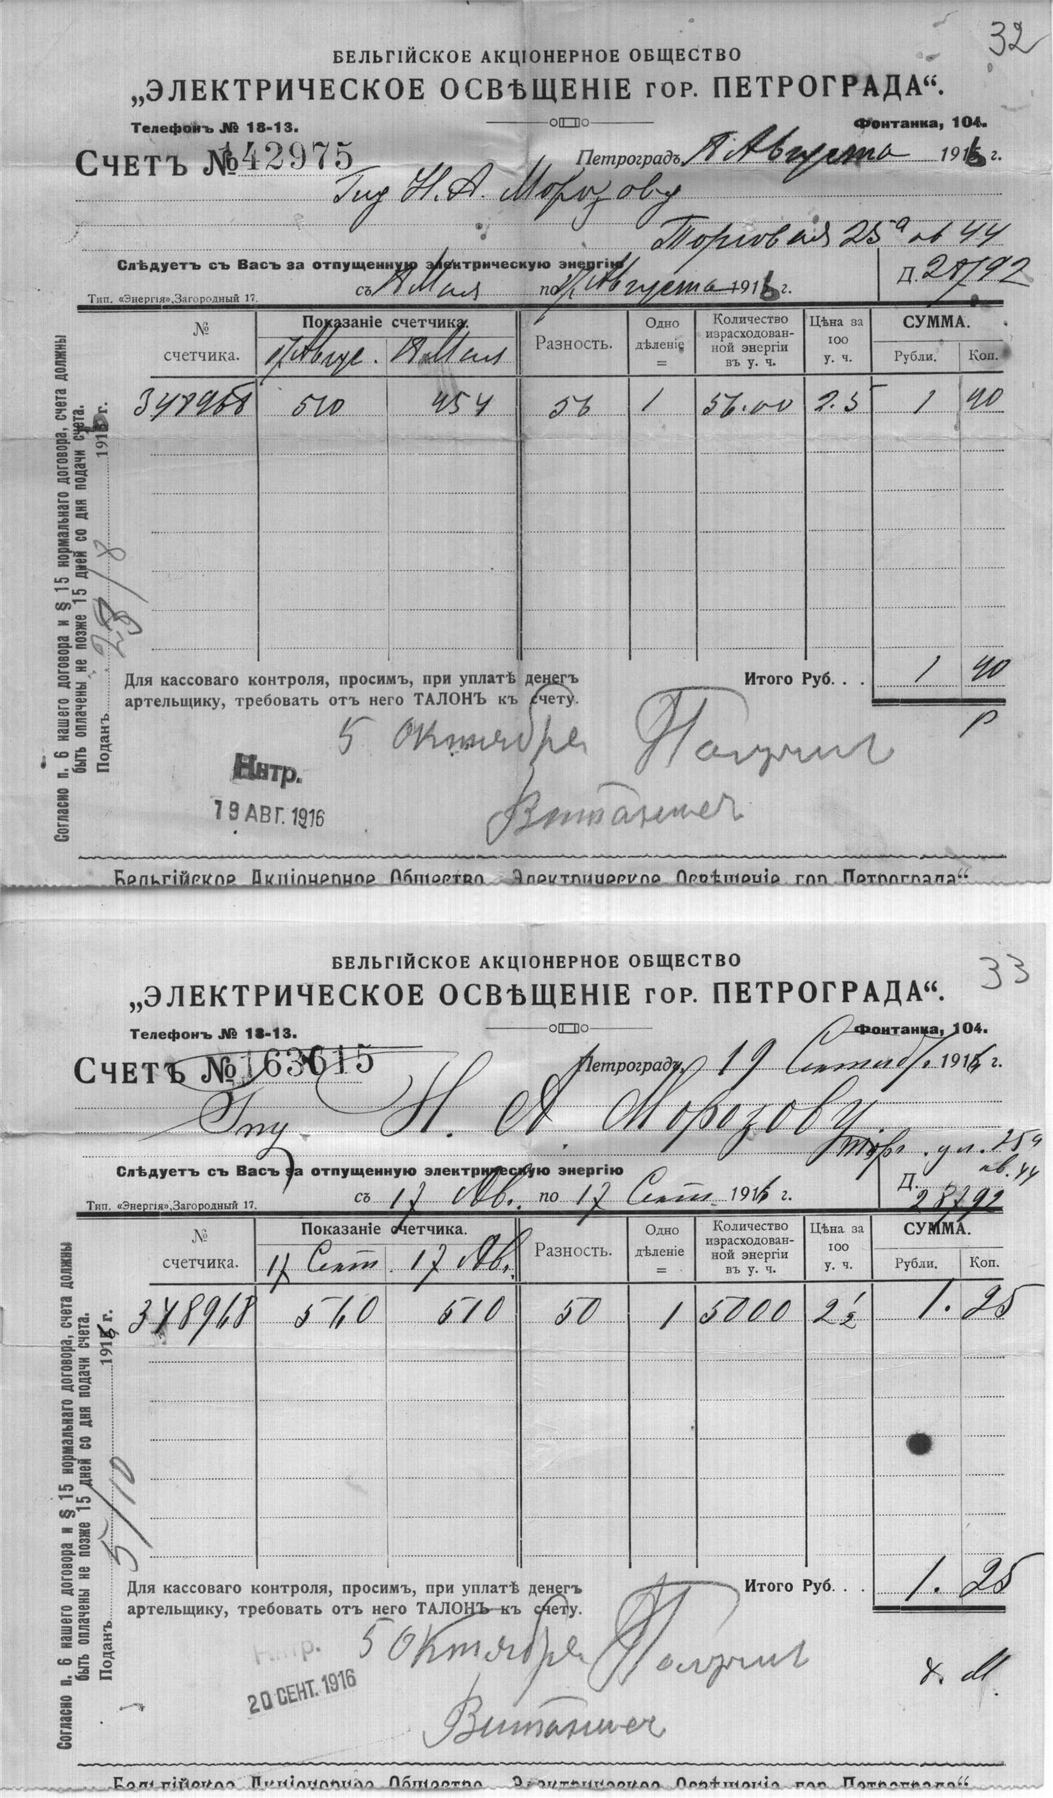 32
БЕЛЬГІЙСКОЕ АКЦІОНЕРНОЕ ОБЩЕСТВО
„ЭЛЕКТРИЧЕСКОЕ ОСВѢЩЕНІЕ ГОР. ПЕТРОГРАДА“.
Телефонъ № 18-13.
Фонтанка, 104.
СЧЕТЪ № 142975
Петроградъ Августа 1916 г.
Гну Н. А. Морозову
Торговая 25а кв 44
Слѣдуетъ съ Васъ за отпущенную электрическую энергію
Д. 28792
Тип. «Энергія», Загородный 17.
съ Мая по 17 Августа 1916 г.
№ счетчика.
Показаніе счетчика.
17 Авгус. Мая
Разность.
Одно дѣленіе =
Количество израсходован-ной энергіи въ у. ч.
Цѣна за 100 у. ч.
СУММА.
Рубли. Коп.
348968 510 454 56 1 56.00 2.5 1 40
Итого Руб. . . 1 40
Для кассоваго контроля, просимъ, при уплатѣ денегъ
артельщику, требовать отъ него ТАЛОНЪ къ счету.
5 Октября Получил
Нтр.
19 АВГ. 1916
Согласно п. 6 нашего договора и § 15 нормальнаго договора, счета должны
быть оплачены не позже 15 дней со дня подачи счета.
Поданъ 23/8 1916 г.
Бельгійское Акціонерное Общество „Электрическое Освѣщеніе гор. Петрограда“
33
БЕЛЬГІЙСКОЕ АКЦІОНЕРНОЕ ОБЩЕСТВО
„ЭЛЕКТРИЧЕСКОЕ ОСВѢЩЕНІЕ ГОР. ПЕТРОГРАДА“.
Телефонъ № 18-13.
Фонтанка, 104.
СЧЕТЪ № 163615
Петроградъ, 19 Сентяб. 1916 г.
Гну Н. А. Морозову
Торг. ул. 25а
кв. 44
Слѣдуетъ съ Васъ за отпущенную электрическую энергію
Д. 28792
Тип. «Энергія», Загородный 17.
съ 17 Ав. по 17 Сент. 1916 г.
№ счетчика.
Показаніе счетчика.
17 Сент. 17 Ав.
Разность.
Одно дѣленіе =
Количество израсходован-ной энергіи въ у. ч.
Цѣна за 100 у. ч.
СУММА.
Рубли. Коп.
348968 560 510 50 1 5000 2 1/2 1. 25
Итого Руб. . . 1. 25
Для кассоваго контроля, просимъ, при уплатѣ денегъ
артельщику, требовать отъ него ТАЛОНЪ къ счету.
5 Октября Получил
Нтр.
20 СЕНТ. 1916
Согласно п. 6 нашего договора и § 15 нормальнаго договора, счета должны
быть оплачены не позже 15 дней со дня подачи счета.
Поданъ 5/10 1916 г.
Бельгійское Акціонерное Общество „Электрическое Освѣщеніе гор. Петрограда“